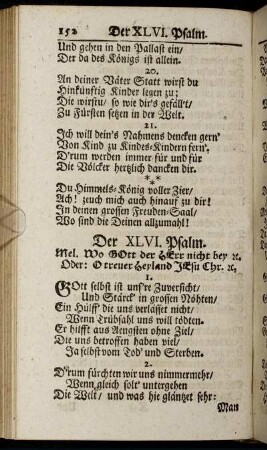 152 Der XLVI. Psalm.
Und gehen in den Pallast ein/
Der da des Königs ist allein.
20.
An deiner Väter Statt wirst du
Hinkünftig Kinder legen zu;
Die wirstu/ so wie dir's gefällt/
Zu Fürsten setzen in der Welt.
21.
Ich will dein's Nahmens dencken gern'
Von Kind zu Kindes-Kindern fern'.
D'rum werden immer für und für
Die Völcker hertzlich dancken dir.
* * *
Du Himmels-König voller Zier/
Ach! zeuch mich auch hinauf zu dir!
In deinen grossen Freuden-Saal/
Wo sind die Deinen allzumahl!
Der XLVI. Psalm.
Mel. Wo GOtt der HErr nicht bey ꝛc.
Oder: O treuer Heyland JEsu Chr. ꝛc.
1.
GOtt selbst ist uns're Zuversicht/
Und Stärck' in grossen Nöhten/
Ein Hülff' die uns verlasset nicht/
Wenn Trübsahl uns will tödten.
Er hilfft aus Aengsten ohne Ziel/
Die uns betroffen haben viel/
Ja selbst vom Tod' und Sterben.
2.
D'rum fürchten wir uns nimmermehr/
Wenn gleich solt' untergehen
Die Welt/ und was hie gläntzet sehr:
Man